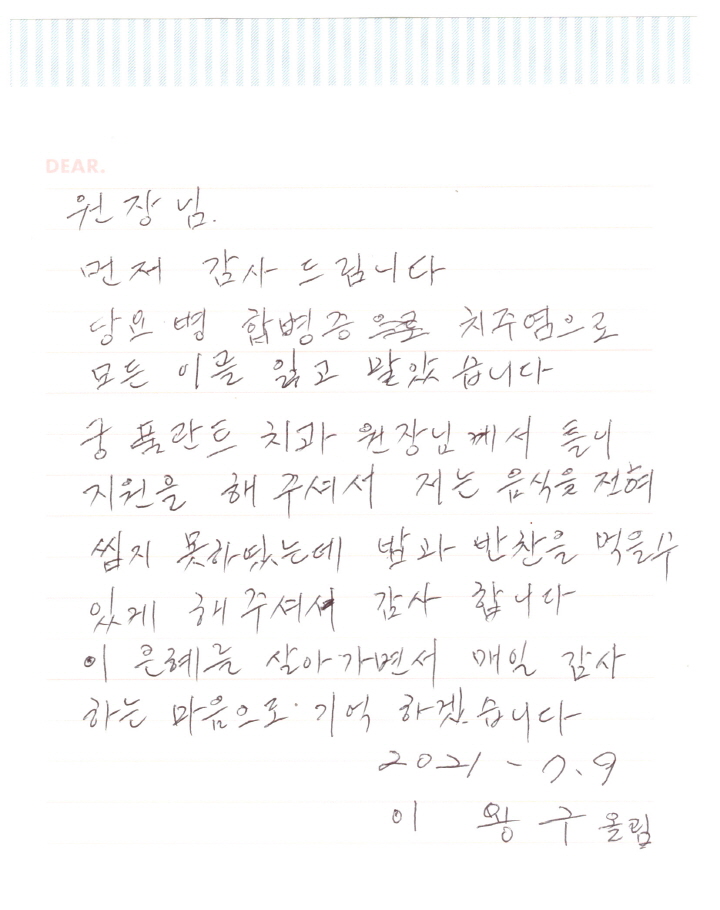 DEAR.
원장님.
먼저 감사 드립니다
당뇨병 합병증으로 치주염으로
모든 이를 잃고 말았습니다
궁플란트 치과 원장님께서 틀니
지원을 해 주셔서 저는 음식을 전혀
씹지 못하였는데 밥과 반찬을 먹을수
있게 해주셔서 감사 합니다
이 은혜를 살아가면서 매일 감사
하는 마음으로 기억 하겠습니다
2021 - 7.9
이 왕구 올림